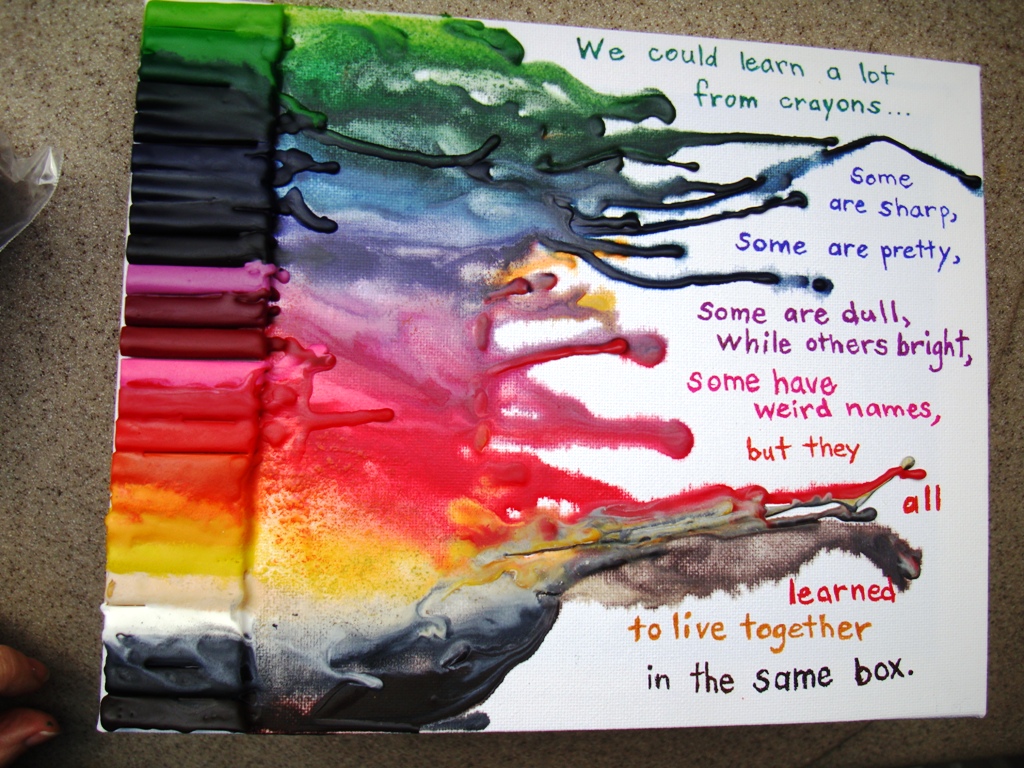 We could learn a lot
from crayons...
Some
are sharp,
Some are pretty,
Some are dull,
while others bright,
some have
weird names,
but they
all
learned
to live together
in the same box.